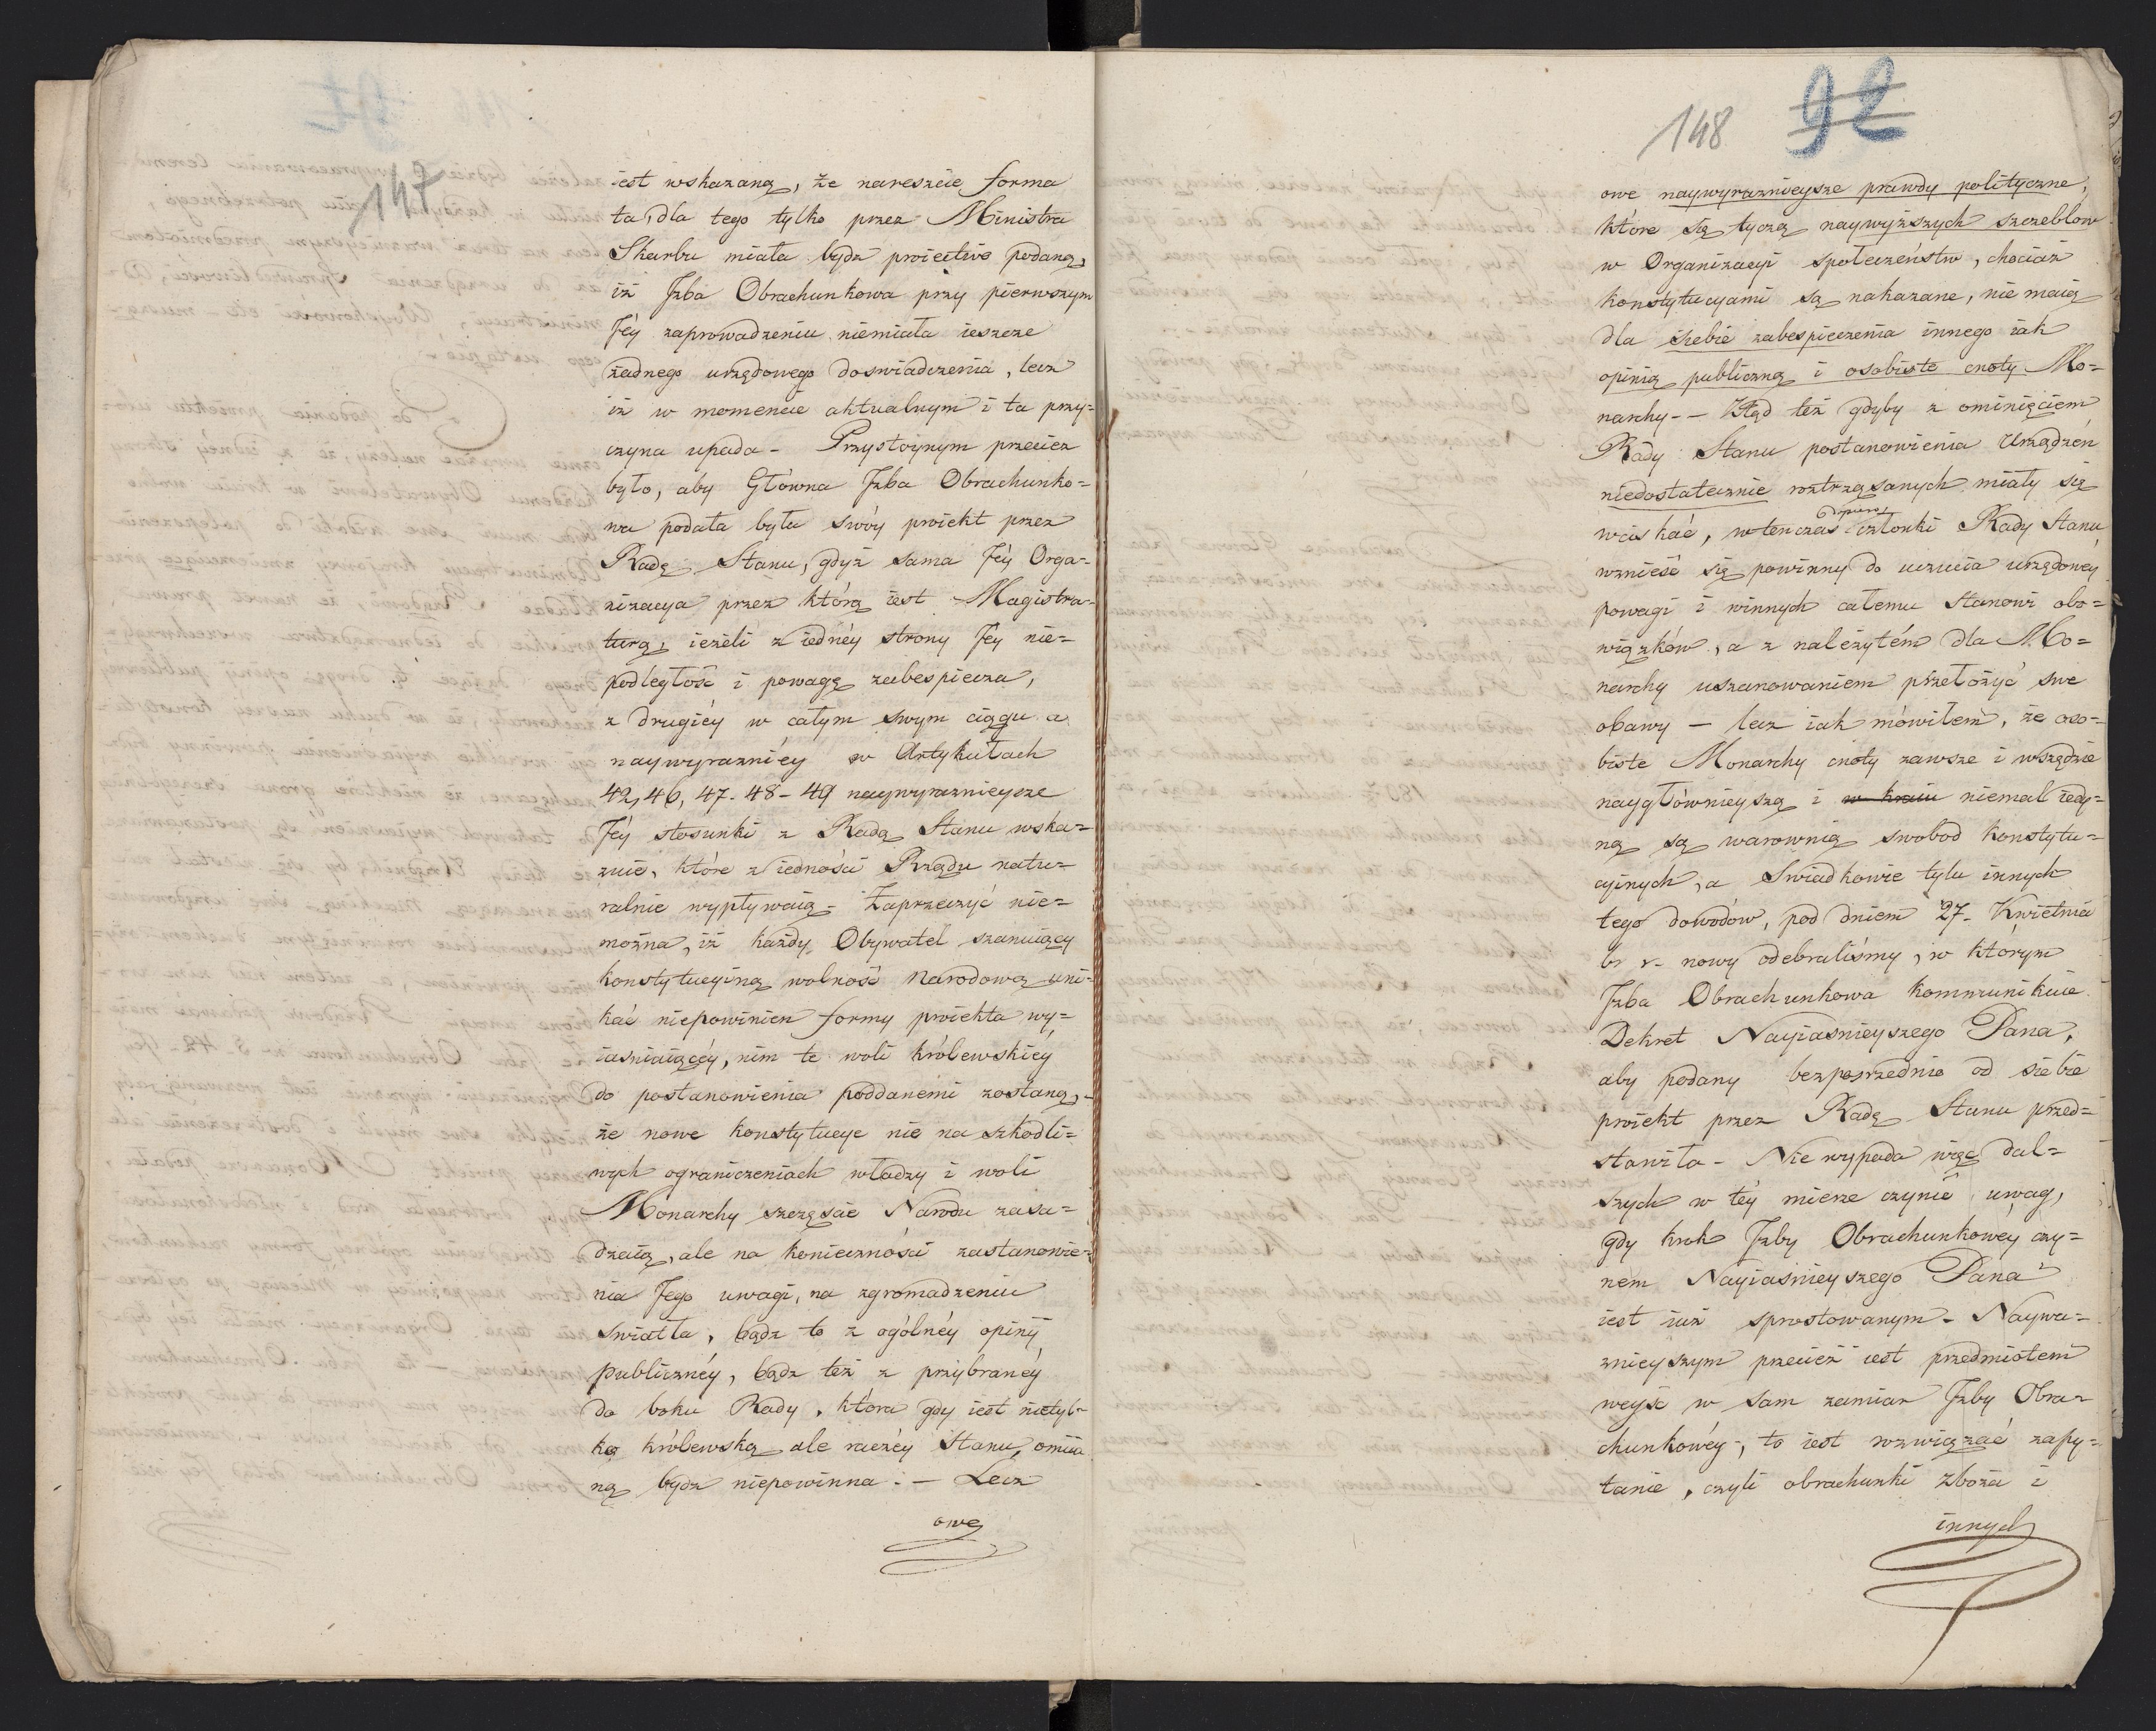 147
iest wskazaną, że nareszcie forma
ta, dla tego tylko przez Ministra
Skarbu miała bydź proiektwo podaną,
iż Jzba Obrachunkowa przy pierwszym
Jéy zaprowadzeniu niemiała ieszcze
żadnego urzędowego doswiadczenia, lecz
iż w momencie aktualnym i ta przy=
czyna upada - Przystoynym przeciez
było, aby Główna Jzba Obrachunko=
wa podała była swóy proiekt przez
Radę Stanu, gdyż sama Jéy Orga=
nizacya przez którą iest Magistra=
turą, ieżeli z iednéy strony Jéy nie=
podległość i powagę zabespiecza,
z drugiéy w całym swym ciągu a
naywyrazniéy w Artykułach
42, 46, 47. 48 - 49 naywyraznieysze
Jéy stosunki z Radą Stanu wska=
zuie, które z iedności Rządu natu=
ralnie wypływaią - Zaprzeczyć nie=
można, iż każdy Obywatel szanuiący
konstytucyiną wolność Narodową uni=
kać niepowinien formy proiekta wy=
iasniaiącéy, nim te woli królewskiéy
do postanowienia poddanemi zostaną, -
że nowe konstytucye nie na szkodli=
wych ograniczeniach władzy i woli
Monarchy szczęście Narodu zasa=
dzaią, ale na konieczności zastanowie=
nia Jego uwagi, na zgromadzeniu
swiatła, bądź to z ogólnéy opinij
publicznéy, bądz też z przybranéy
do boku Rady, która gdy iest nietyl=
ko królewską ale raczéy Stanu, omiia
ną bydz niepowinna. - Lecz
owe
148 92
owe naywyraznieysze prawdy polityczne,
które się tyczą naywyższych szczeblów
w Organizacyi społeczeństw, chociaż
konstytucyami są nakazane, nie maią
dla siebie zabespieczenia innego iak
opinią publiczną i osobiste cnoty Mo=
narchy - - Ztąd też gdyby z ominięciem
Rady Stanu postanowienia Urządzéń
niedostatecznie roztrząsanych miały się
dopiero
wciskać, wtenczas członki Rady Stanu
wznieść się powinny do uczucia urzędowéy
powagi i winnych całemu Stanowi obo=
wiązków, a z należytém dla Mo=
narchy uszanowaniem przełożyć swe
obawy - lecz iak mówiłem, że oso=
biste Monarchy cnoty zawsze i wszędzie
naygłównieyszą i w kraiu niemal iedy=
ną są warownią swobod konstytu=
cyinych, a Swiadkowie tylu innych
tego dowodów, pod dniem 27. Kwietnia
b r - nowy odebraliśmy, w którym
Jzba Obrachunkowa kommunikuie
Dekret Nayiasnieyszego Pana,
aby podany bezposrzednio od siebie
proiekt przez Radę Stanu przed=
stawiła - Nie wypada więc dal=
szych w téy mierze czynić uwag,
gdy krok Jzby Obrachunkowéy czy=
nem Nayiasnieyszego Pana
iest iuż sprostowanym - Naywa=
znieyszym przecież iest przedmiotem
weyść w sam zamiar Jzby Obra=
chunkowéy, to iest rozwiązać zapy=
tanie, czyli obrachunki zboża i
innych